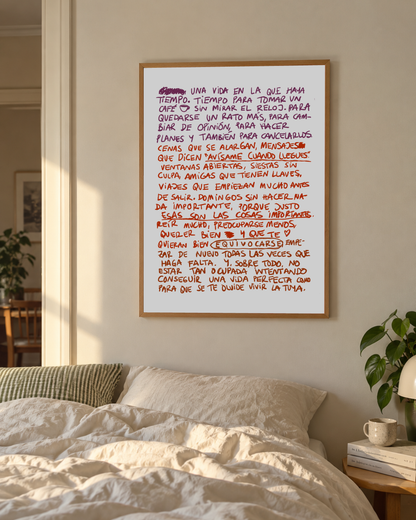 UNA VIDA EN LA QUE HAYA
TIEMPO. TIEMPO PARA TOMAR UN
CAFÉ SIN MIRAR EL RELOJ. PARA
QUEDARSE UN RATO MÁS, PARA CAM-
BIAR DE OPINIÓN, PARA HACER
PLANES Y TAMBIÉN PARA CANCELARLOS
CENAS QUE SE ALARGAN, MENSAJES
QUE DICEN "AVÍSAME CUANDO LLEGUES"
VENTANAS ABIERTAS, SIESTAS SIN
CULPA AMIGAS QUE TIENEN LLAVES,
VIAJES QUE EMPIEZAN MUCHO ANTES
DE SALIR. DOMINGOS SIN HACER NA-
DA IMPORTANTE, PORQUE JUSTO
ESAS SON LAS COSAS IMPORTANTES.
REÍR MUCHO, PREOCUPARSE MENOS,
QUERER BIEN Y QUE TE
QUIERAN BIEN EQUIVOCARSE EMPE-
ZAR DE NUEVO TODAS LAS VECES QUE
HAGA FALTA. Y, SOBRE TODO, NO
ESTAR TAN OCUPADA INTENTANDO
CONSEGUIR UNA VIDA PERFECTA COMO
PARA QUE SE TE OLVIDE VIVIR LA TUYA.